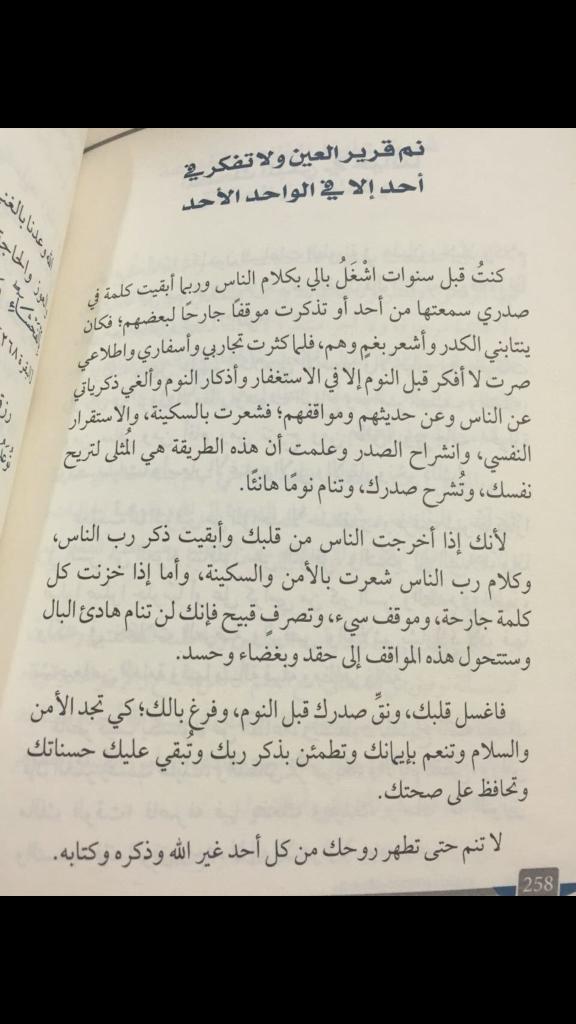 نم قرير العين ولا تفكر في
أحد إلا في الواحد الأحد
كنتُ قبل سنوات اشْغَلُ بالي بكلام الناس وربما أبقيت كلمة في
صدري سمعتها من أحد أو تذكرت موقفًا جارحًا لبعضهم؛ فكان
ينتابني الكدر وأشعر بغمٍ وهم، فلما كثرت تجاربي وأسفاري واطلاعي
صرت لا أفكر قبل النوم إلا في الاستغفار وأذكار النوم وألغي ذكرياتي
عن الناس وعن حديثهم ومواقفهم؛ فشعرت بالسكينة، والاستقرار
النفسي، وانشراح الصدر وعلمت أن هذه الطريقة هي المُثلى لتريح
نفسك، وتُشرح صدرك، وتنام نومًا هانئًا.
لأنك إذا أخرجت الناس من قلبك وأبقيت ذكر رب الناس،
وكلام رب الناس شعرت بالأمن والسكينة، وأما إذا خزنت كل
كلمة جارحة، وموقف سيء، وتصرفٍ قبيح فإنك لن تنام هادئ البال
وستتحول هذه المواقف إلى حقد وبغضاء وحسد.
فاغسل قلبك، ونقِّ صدرك قبل النوم، وفرغ بالك؛ كي تجد الأمن
والسلام وتنعم بإيمانك وتطمئن بذكر ربك وتُبقي عليك حسناتك
وتحافظ على صحتك.
لا تنم حتى تطهر روحك من كل أحد غير الله وذكره وكتابه.
258